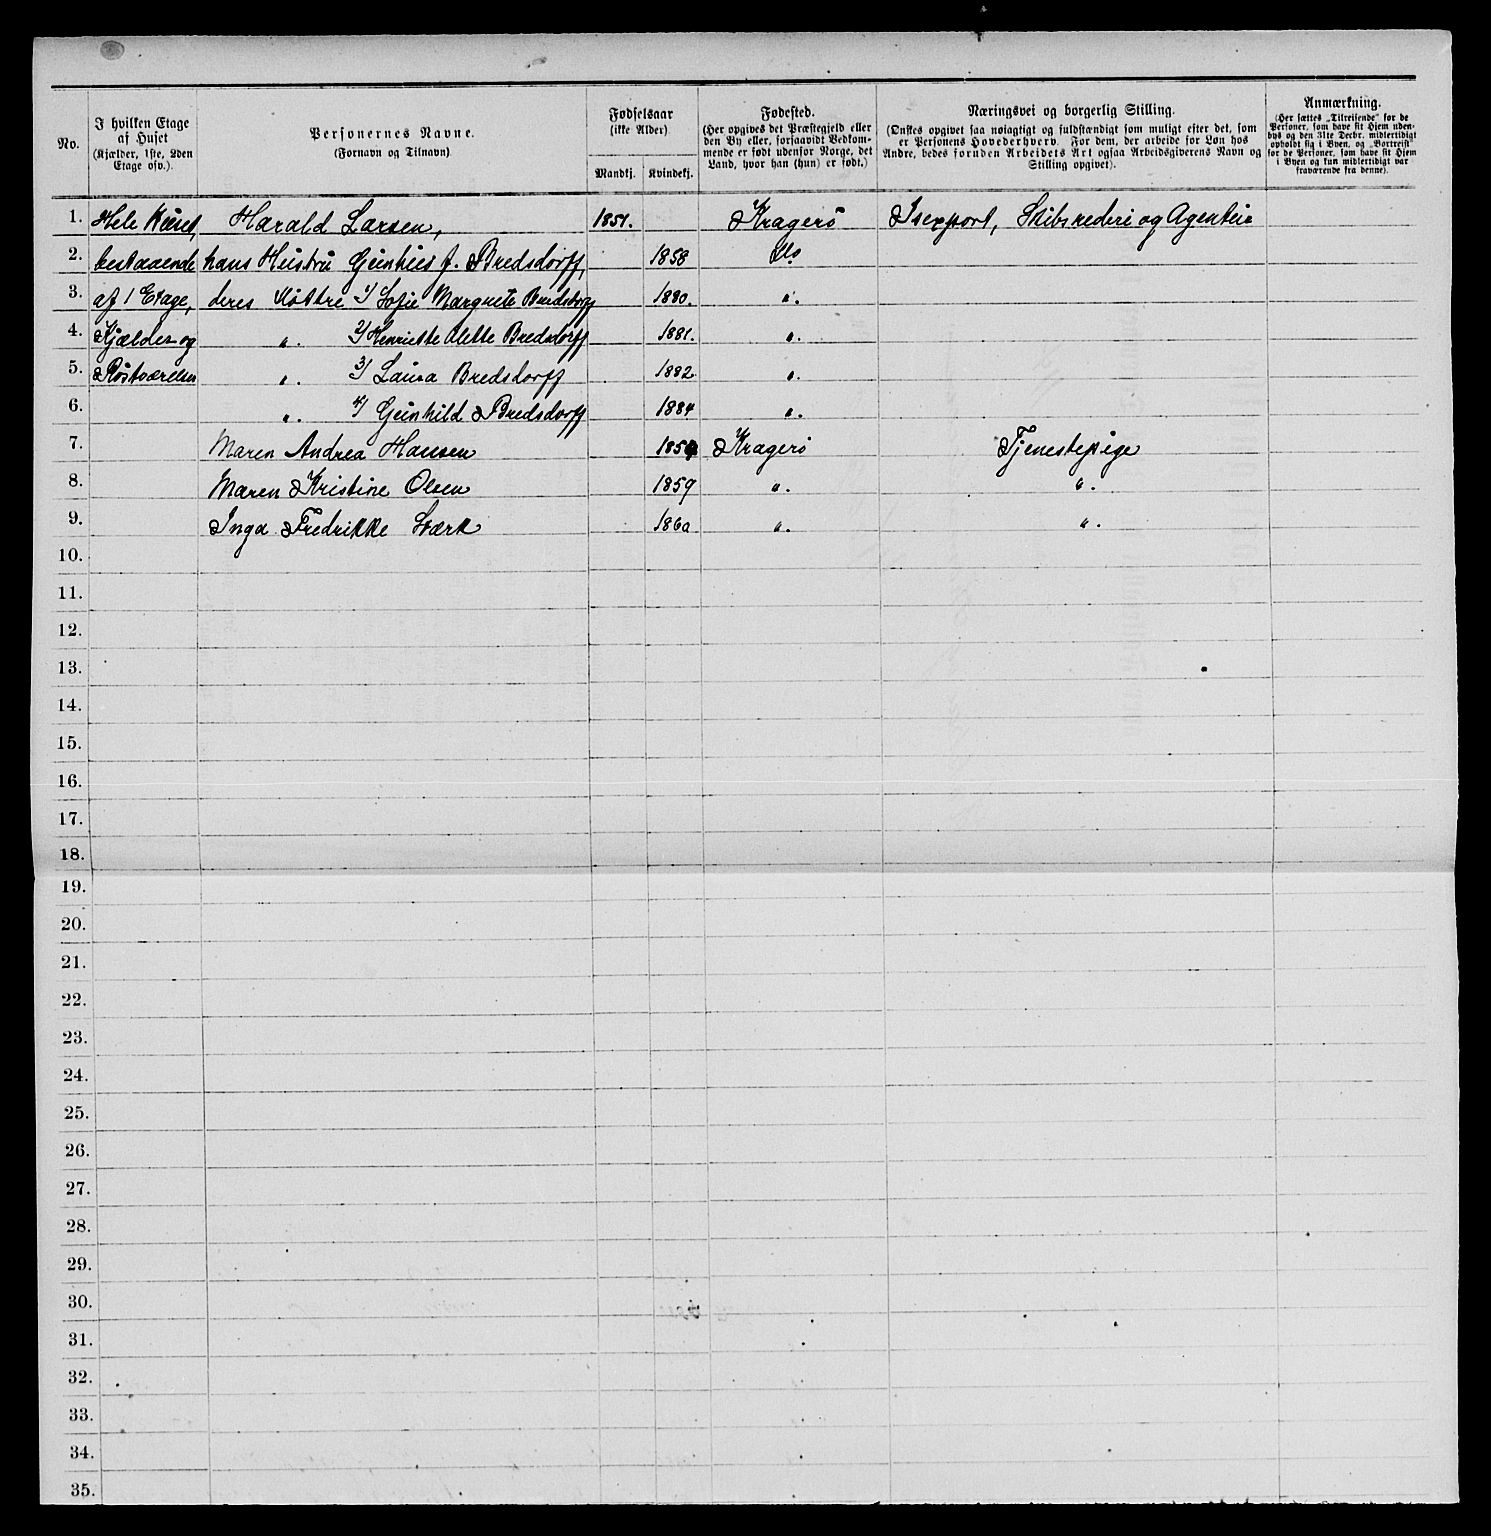 No. | I hvilken Etage af Huset (Kjælder, 1ste, 2den Etage osv.). | Personernes Navne. (Fornavn og Tilnavn) | Fødselsaar (ikke Alder) Mandkj. | Kvindekj. | Fødested. (Her opgives det Præstegjeld eller den By eller, forsaavidt Vedkommende er født udenfor Norge, det Land, hvor han (hun) er født.) | Næringsvei og borgerlig Stilling. (Ønskes opgivet saa nøiagtigt og fuldstændigt som muligt efter det, som er Personens Hovederhverv. For dem, der arbeide for Løn hos Andre, bedes foruden Arbeidets Art ogsaa Arbeidsgiverens Navn og Stilling opgivet). | Anmærkning. (Her sættes „Tilreisende“ for de Personer, som have sit Hjem udenbys og den 31te Decbr. midlertidigt opholdt sig i Byen, og „Bortreist“ for de Personer, som have sit Hjem i Byen og kun midlertidigt var fraværende fra denne).
1. Hele Huset, Harald Larsen, 1851. Kragerø Isexport, Skibsrederi og Agentur
2. bestaaende hans Hustru f. Bredsdorff, 1858 do
3. af 1 Etage, deres Døttre 1) Sofie Margrete Bredsdorff 1880. ".
4. Kjælder og ". 2) Henriette Alette Bredsdorff 1881. ".
5. ". 3) Laura Bredsdorff 1882. ".
6. ". 4) Gunhild Bredsdorff 1884 ".
7. Maren Andrea Hansen Kragerø Tjenestepige
8. Maren Kristine Olsen 1859 ". ".
9. Inga Fredrikke Stærk 1860 ". ".
10.
11.
12.
13.
14.
15.
16.
17.
18.
19.
20.
21.
22.
23.
24.
25.
26.
27.
28.
29.
30.
31.
32.
33.
34.
35.